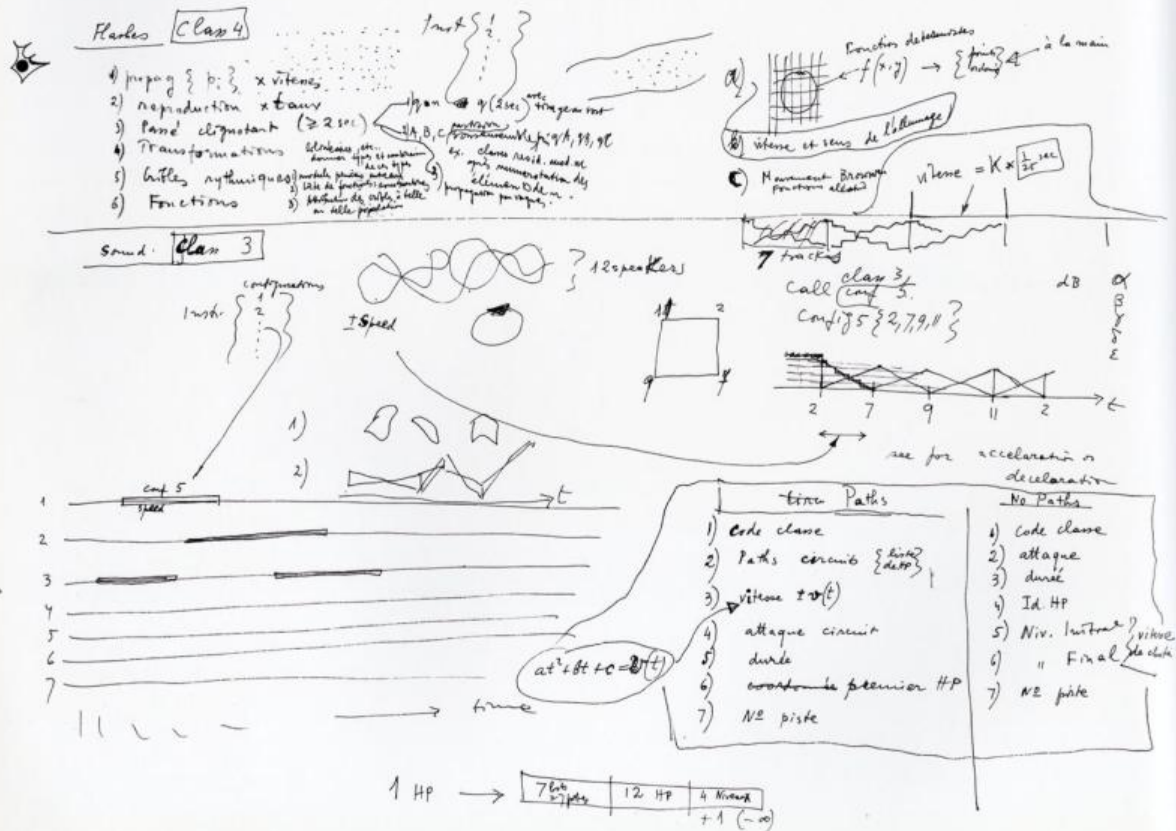 Flashes Class 4
1) propag { pi } x vitesses
2) reproduction x taux
3) Passé clignotant (≥ 2 sec)
4) Transformations
5) Cribles rythmiques
6) Fonctions
Inst {
1
2
q (2 sec) avec
A, B, C
ex. classes resid. mod. m
après memorisation des
propagation par vagues.
a)
Fonctions
f(x,y) → { points
à la main
b) vitesse et sens de l'allumage
c) Mouvement Brownien
Fonctions
vitesse = K x 1/25 sec
Sound: Class 3
configurations
Instr. {
1
2
± Speed
} 12 speakers
1 2
7 tracks
call class 3,
conf 5.
config 5 { 2, 7, 9, 11 }
dB
α
β
γ
δ
ε
2 7 9 11 2 t
see for accelaration or
decelaration
1)
2)
t
conf 5
speed
1
2
3
4
5
6
7
time
at² + bt + c = v(t)
Paths
1) Code classe
2) Paths circuits { liste de HP }
3) vitesse ± v(t)
4) attaque circuit
5) durée
6) coordonnée premier HP
7) Nº piste
No Paths
1) Code classe
2) attaque
3) durée
4) Id. HP
5) Niv. Initial
6) " Final
vitesse
de chute
7) Nº piste
1 HP → 7 bits 12 HP 4 Niveaux
+ 1 (-∞)